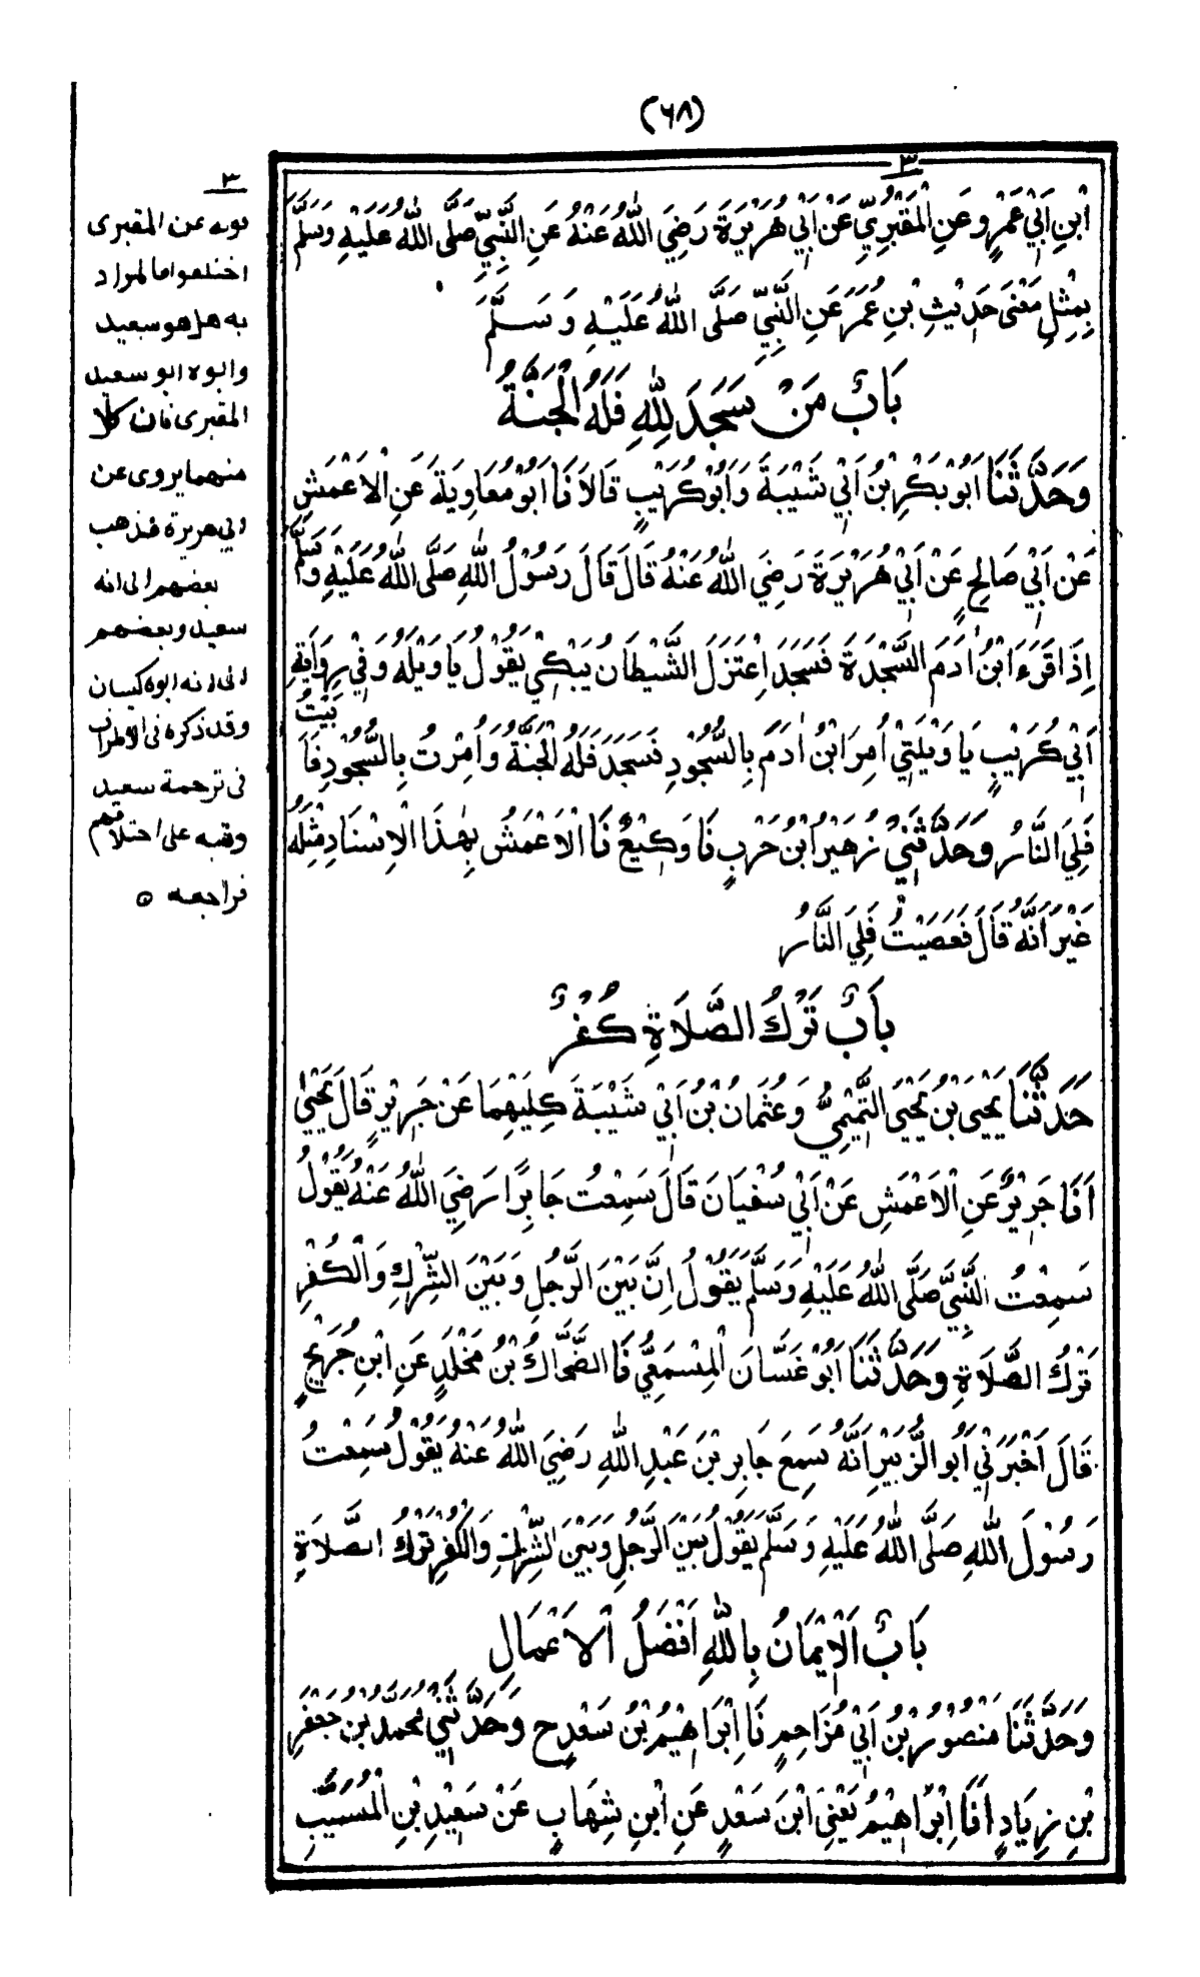 (٦٨)
٣
ابْنِ اَبِيْ عَمْرٍو عَنِ الْمَقْبُرِيِّ عَنْ اَبِيْ هُرَيْرَةَ رَضِيَ اللّٰهُ عَنْهُ عَنِ النَّبِيِّ صَلَّى اللّٰهُ عَلَيْهِ وَسَلَّمَ
بِمِثْلِ مَعْنٰى حَدِيْثِ بْنِ عُمَرَ عَنِ النَّبِيِّ صَلَّى اللّٰهُ عَلَيْهِ وَسَلَّمَ
بَابُ مَنْ سَجَدَ لِلّٰهِ فَلَهُ الْجَنَّةُ
وَحَدَّثَنَا اَبُوْ بَكْرِ بْنُ اَبِيْ شَيْبَةَ وَاَبُوْ كُرَيْبٍ قَالَا نَا اَبُوْ مُعَاوِيَةَ عَنِ الْاَعْمَشِ
عَنْ اَبِيْ صَالِحٍ عَنْ اَبِيْ هُرَيْرَةَ رَضِيَ اللّٰهُ عَنْهُ قَالَ قَالَ رَسُوْلُ اللّٰهِ صَلَّى اللّٰهُ عَلَيْهِ وَسَلَّمَ
اِذَا قَرَءَ ابْنُ اٰدَمَ السَّجْدَةَ فَسَجَدَ اِعْتَزَلَ الشَّيْطَانُ يَبْكِيْ يَقُوْلُ يَا وَيْلَهُ وَفِيْ رِوَايَةِ
اَبِيْ كُرَيْبٍ يَا وَيْلَتِيْ اُمِرَ ابْنُ اٰدَمَ بِالسُّجُوْدِ فَسَجَدَ فَلَهُ الْجَنَّةُ وَاُمِرْتُ بِالسُّجُوْدِ فَاَبَيْتُ
فَلِيَ النَّارُ وَحَدَّثَنِيْ زُهَيْرُ ابْنُ حَرْبٍ نَا وَكِيْعٌ نَا الْاَعْمَشُ بِهٰذَا الْاِسْنَادِ مِثْلَهُ
غَيْرَ اَنَّهُ قَالَ فَعَصَيْتُ فَلِيَ النَّارُ
بَابٌ تَرْكُ الصَّلَاةِ كُفْرٌ
حَدَّثَنَا يَحْيَى بْنُ يَحْيَى التَّمِيْمِيُّ وَعُثْمَانُ بْنُ اَبِيْ شَيْبَةَ كِلَيْهِمَا عَنْ جَرِيْرٍ قَالَ يَحْيٰى
اَنَا جَرِيْرٌ عَنِ الْاَعْمَشِ عَنْ اَبِيْ سُفْيَانَ قَالَ سَمِعْتُ جَابِرًا رَضِيَ اللّٰهُ عَنْهُ يَقُوْلُ
سَمِعْتُ النَّبِيَّ صَلَّى اللّٰهُ عَلَيْهِ وَسَلَّمَ يَقُوْلُ اِنَّ بَيْنَ الرَّجُلِ وَبَيْنَ الشِّرْكِ وَالْكُفْرِ
تَرْكُ الصَّلَاةِ وَحَدَّثَنَا اَبُوْ غَسَّانَ الْمِسْمَعِيُّ نَا الضَّحَّاكُ بْنُ مَخْلَدٍ عَنِ ابْنِ جُرَيْجٍ
قَالَ اَخْبَرَنِيْ اَبُو الزُّبَيْرِ اَنَّهُ سَمِعَ جَابِرَ بْنَ عَبْدِ اللّٰهِ رَضِيَ اللّٰهُ عَنْهُ يَقُوْلُ سَمِعْتُ
رَسُوْلَ اللّٰهِ صَلَّى اللّٰهُ عَلَيْهِ وَسَلَّمَ يَقُوْلُ بَيْنَ الرَّجُلِ وَبَيْنَ الشِّرْكِ وَالْكُفْرِ تَرْكُ الصَّلَاةِ
بَابٌ اَلْاِيْمَانُ بِاللّٰهِ اَفْضَلُ الْاَعْمَالِ
وَحَدَّثَنَا مَنْصُوْرُ بْنُ اَبِيْ مُزَاحِمٍ نَا اِبْرَاهِيْمُ بْنُ سَعْدٍ ح وَحَدَّثَنِيْ مُحَمَّدُ بْنُ جَعْفَرِ
بْنِ زِيَادٍ اَنَا اِبْرَاهِيْمُ يَعْنِى ابْنَ سَعْدٍ عَنِ ابْنِ شِهَابٍ عَنْ سَعِيْدِ بْنِ الْمُسَيَّبِ
٣
قوله عن المقبرى
اختلفوا ما المراد
به هل هو سعيد
والوه ابو سعيد
المقبرى فان كلًا
منهما يروى عن
ابي هريرة فذهب
بعضهم الى انه
سعيد وبعضهم
الى انه ابوه كيسان
وقد ذكره فى
فى ترجمة سعيد
ونبه على اختلافهم
فراجعه ٥